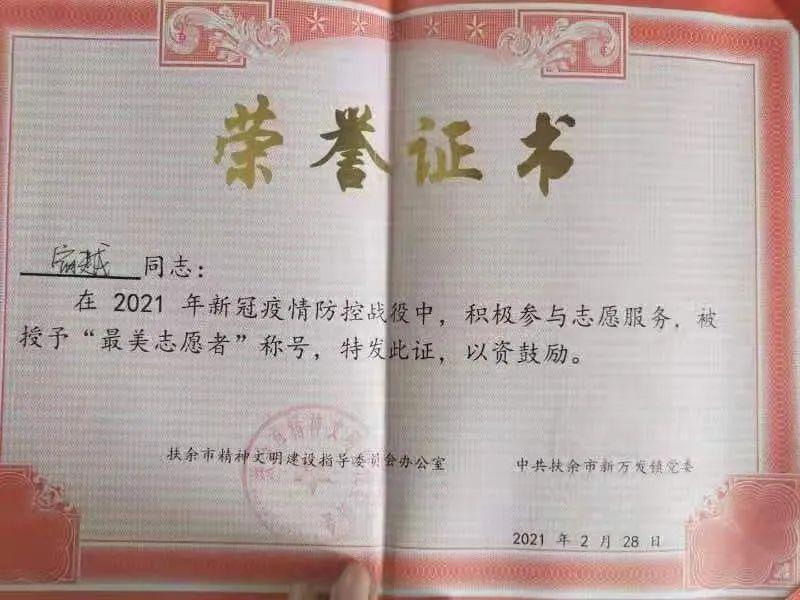 荣誉证书
宿越 同志：
在 2021 年新冠疫情防控战役中，积极参与志愿服务，被
授予“最美志愿者”称号，特发此证，以资鼓励。
扶余市精神文明建设指导委员会办公室
中共扶余市新万发镇党委
2021 年 2 月 28 日